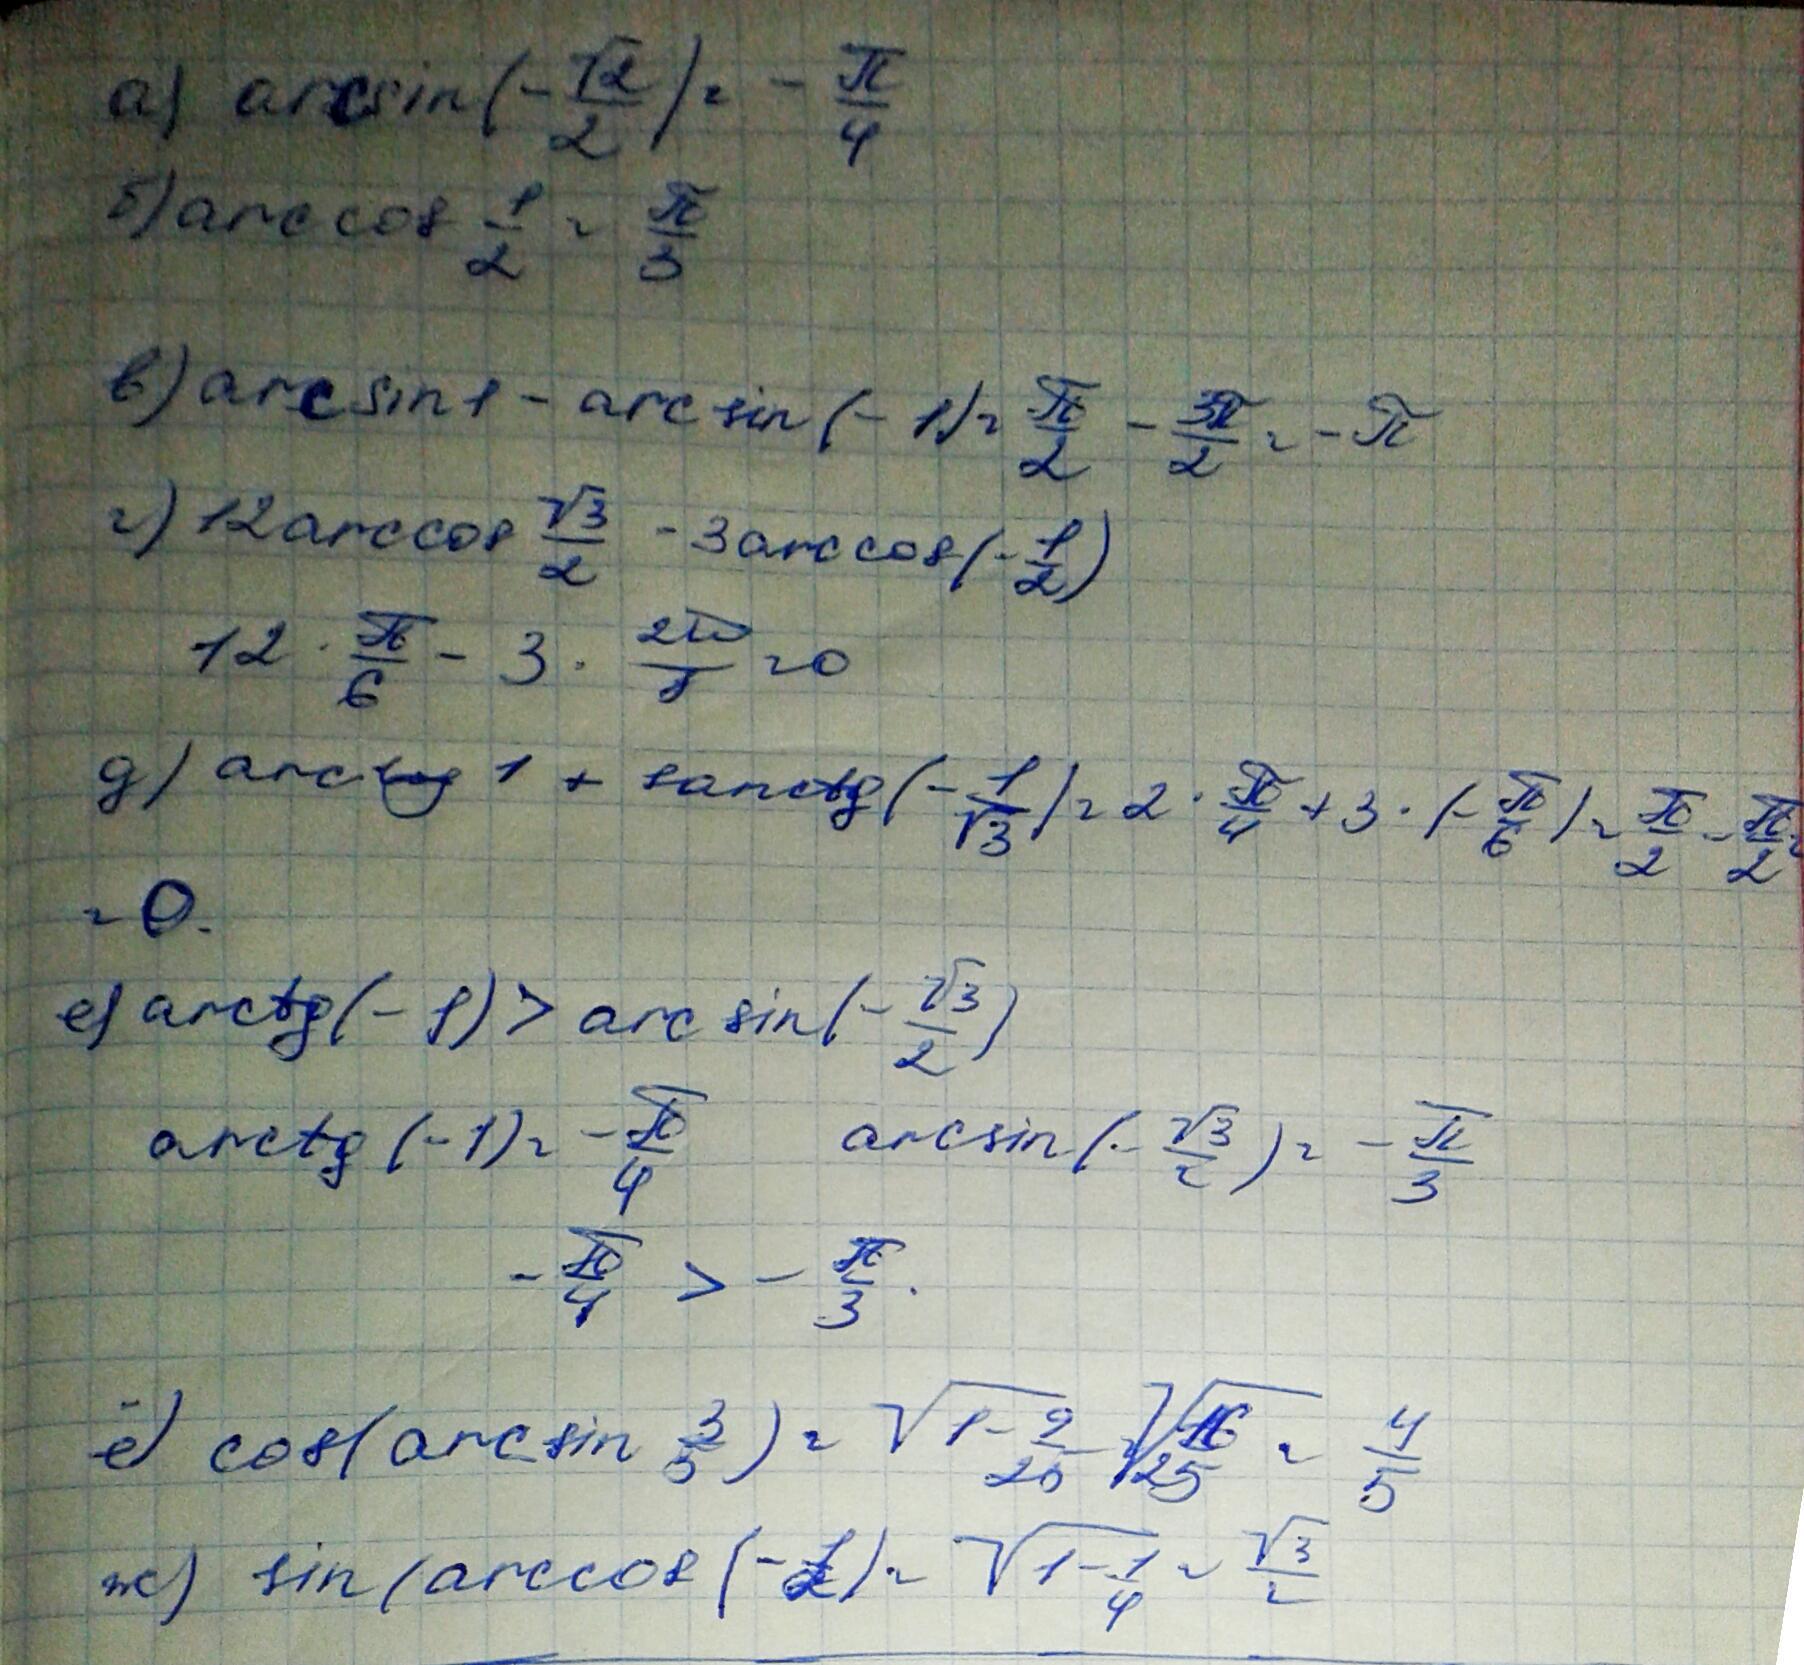 а) arcsin(-√2/2) = -π/4
б) arccos 1/2 = π/3
в) arcsin1 - arcsin(-1) = π/2 - 3π/2 = -π
г) 12arccos √3/2 - 3arccos(-1/2)
12 · π/6 - 3 · 2π/3 = 0
д) arctg 1 + arctg(-1/√3) = 2 · π/4 + 3 · (-π/6) = π/2 - π/2 =
= 0.
е) arctg(-1) > arcsin(-√3/2)
arctg(-1) = -π/4 arcsin(-√3/2) = -π/3
-π/4 > -π/3.
ё) cos(arcsin 3/5) = √1-9/25 = √16/25 = 4/5
ж) sin(arccos(-1/2) = √1-1/4 = √3/2